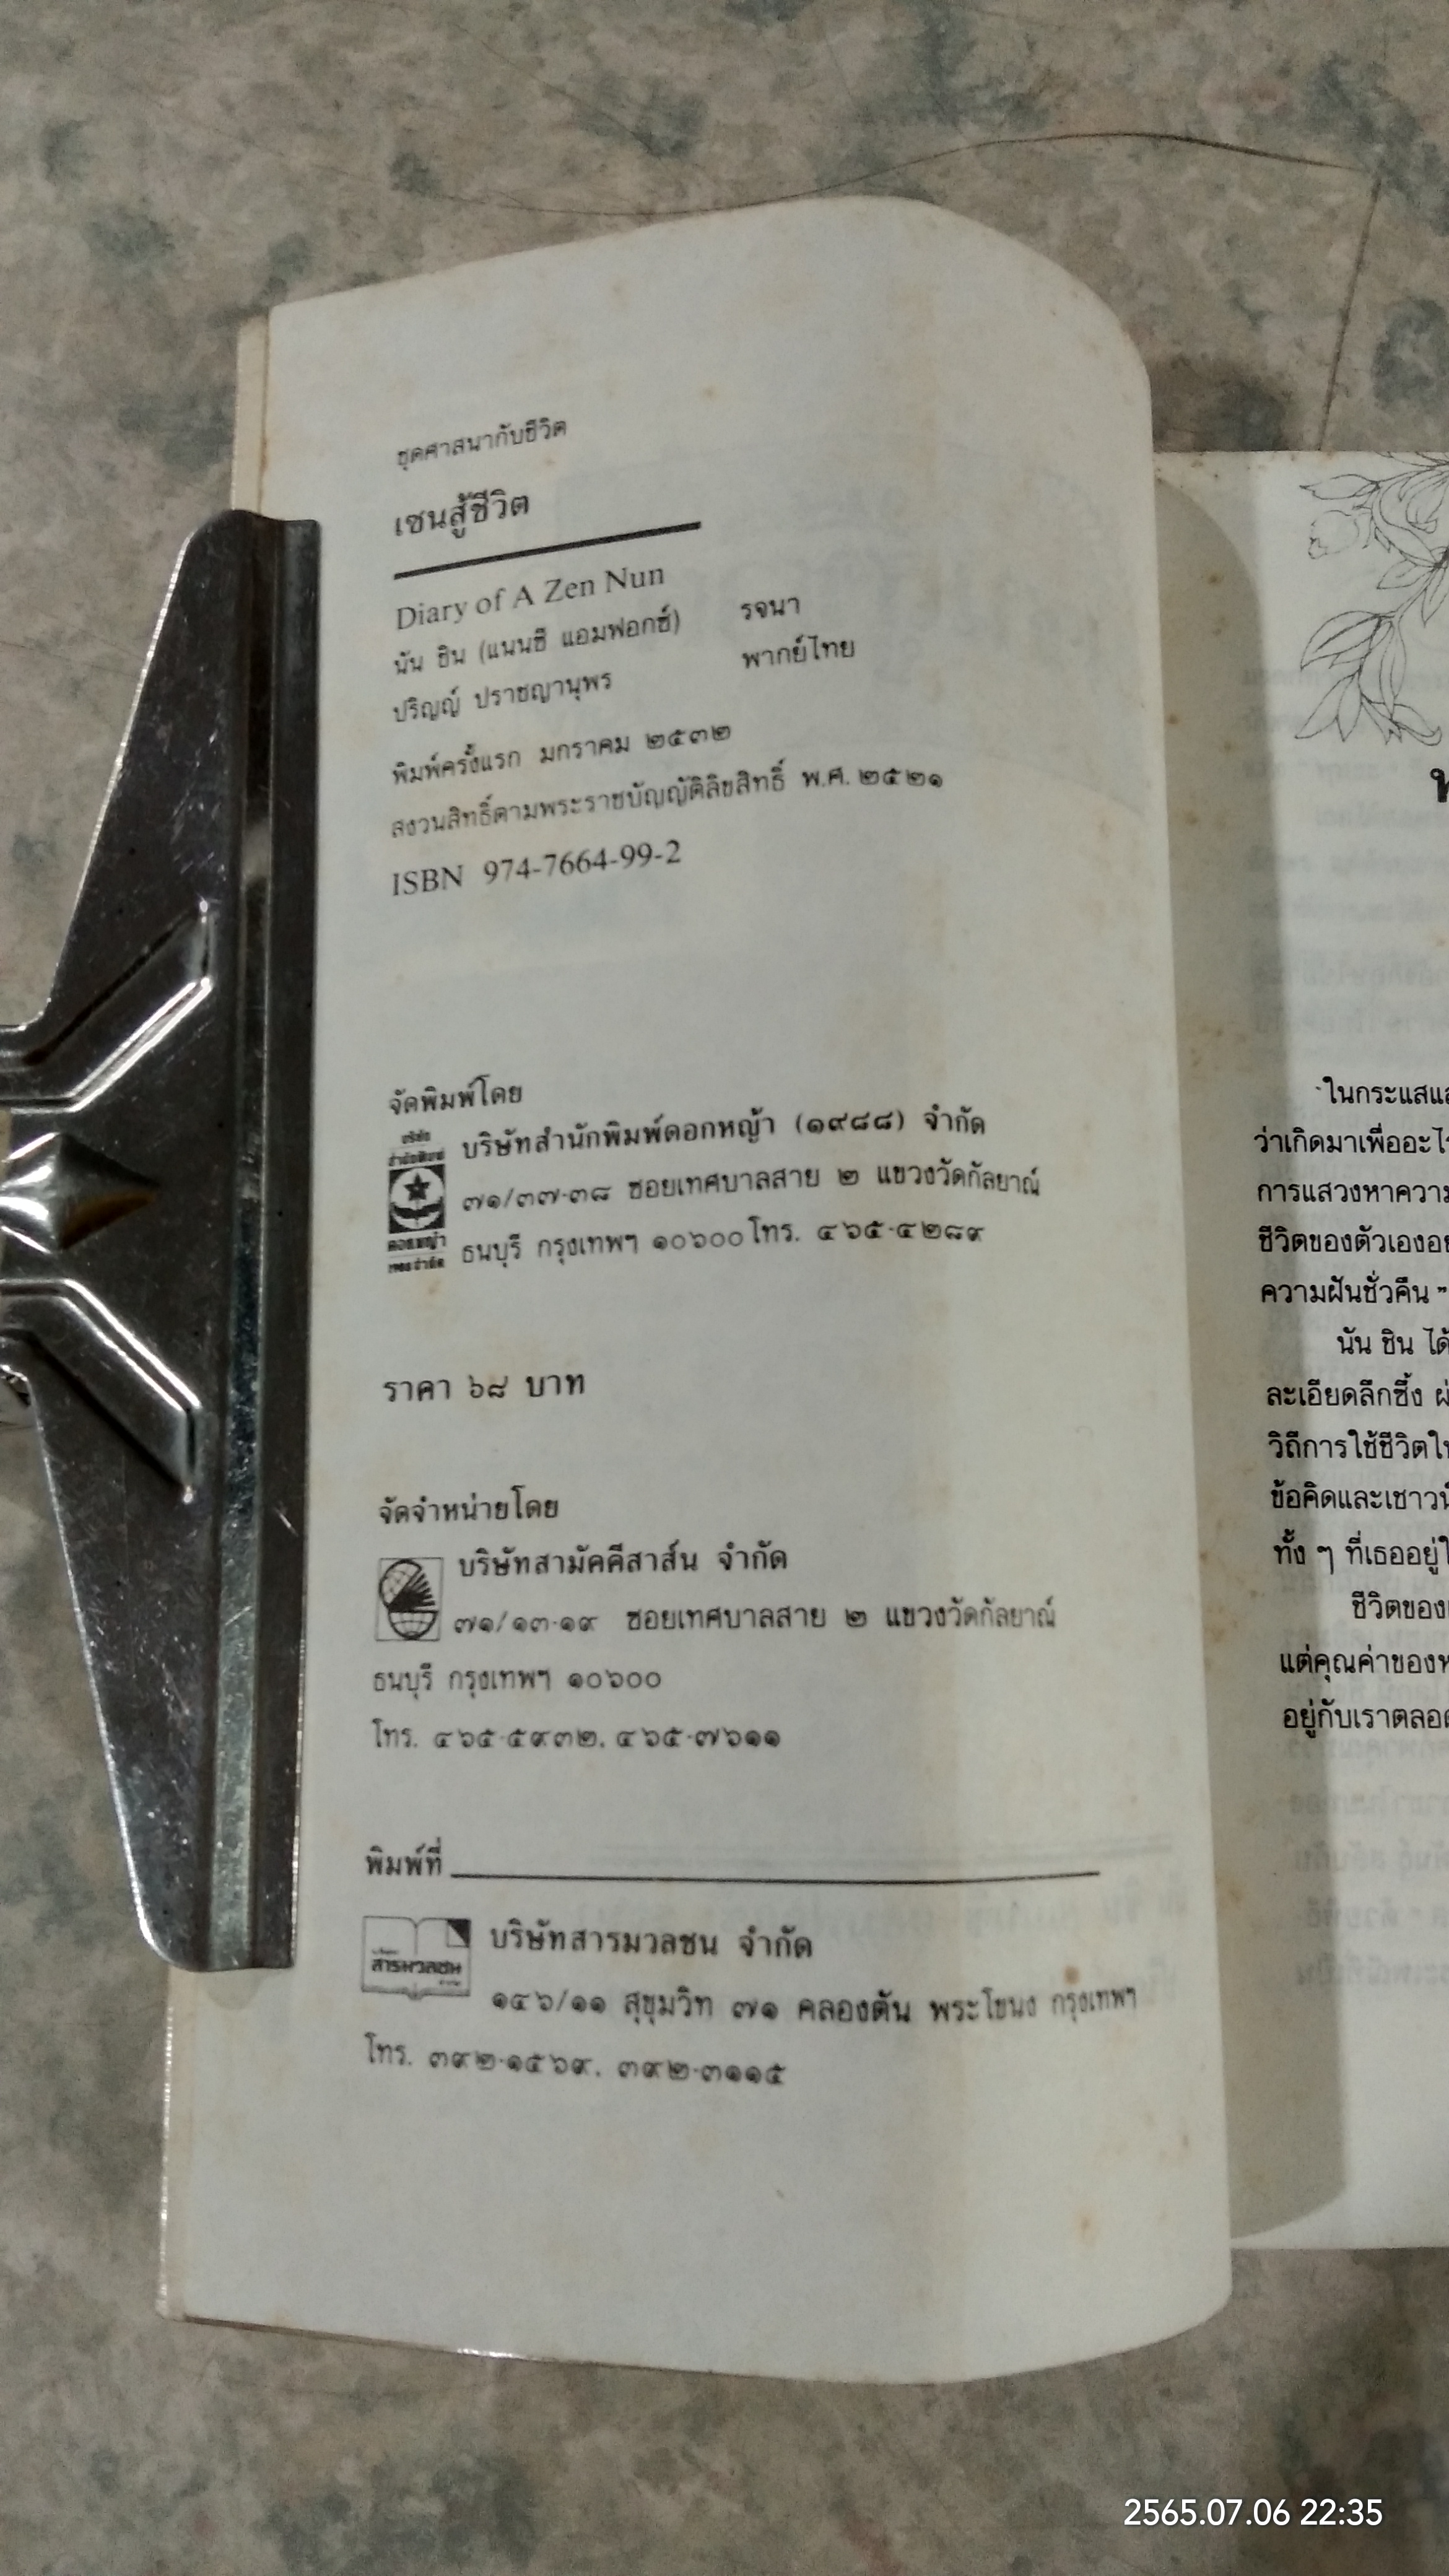 ชุดศาสนากับชีวิต
เซนสู้ชีวิต
Diary of A Zen Nun
นัน ชิน (แนนซี แอมฟอกซ์) รจนา
ปริญญ์ ปราชญานุพร พากย์ไทย
พิมพ์ครั้งแรก มกราคม ๒๕๓๒
สงวนสิทธิ์ตามพระราชบัญญัติลิขสิทธิ์ พ.ศ. ๒๕๒๑
ISBN 974-7664-99-2
จัดพิมพ์โดย
บริษัทสำนักพิมพ์ดอกหญ้า (๑๙๘๘) จำกัด
๗๑/๓๗-๓๘ ซอยเทศบาลสาย ๒ แขวงวัดกัลยาณ์
ธนบุรี กรุงเทพฯ ๑๐๖๐๐ โทร. ๔๖๕-๔๒๘๙
บริษัท
สำนักพิมพ์
ดอกหญ้า
1988 จำกัด
ราคา ๖๘ บาท
จัดจำหน่ายโดย
บริษัทสามัคคีสาส์น จำกัด
๗๑/๑๓-๑๙ ซอยเทศบาลสาย ๒ แขวงวัดกัลยาณ์
ธนบุรี กรุงเทพฯ ๑๐๖๐๐
โทร. ๔๖๕-๕๙๓๒, ๔๖๕-๗๖๑๑
พิมพ์ที่
บริษัทสารมวลชน จำกัด
สารมวลชน
๑๔๖/๑๑ สุขุมวิท ๗๑ คลองตัน พระโขนง กรุงเทพฯ
โทร. ๓๙๒-๑๕๖๙, ๓๙๒-๓๑๑๕
ในกระแสแ
ว่าเกิดมาเพื่ออะไร
การแสวงหาความ
ชีวิตของตัวเองอย
ความฝันชั่วคืน"
นัน ชิน ได้
ละเอียดลึกซึ้ง ผ
วิถีการใช้ชีวิตใ
ข้อคิดและเชาวน์
ทั้ง ๆ ที่เธออยู่ใ
ชีวิตของ
แต่คุณค่าของ
อยู่กับเราตลอด
2565.07.06 22:35